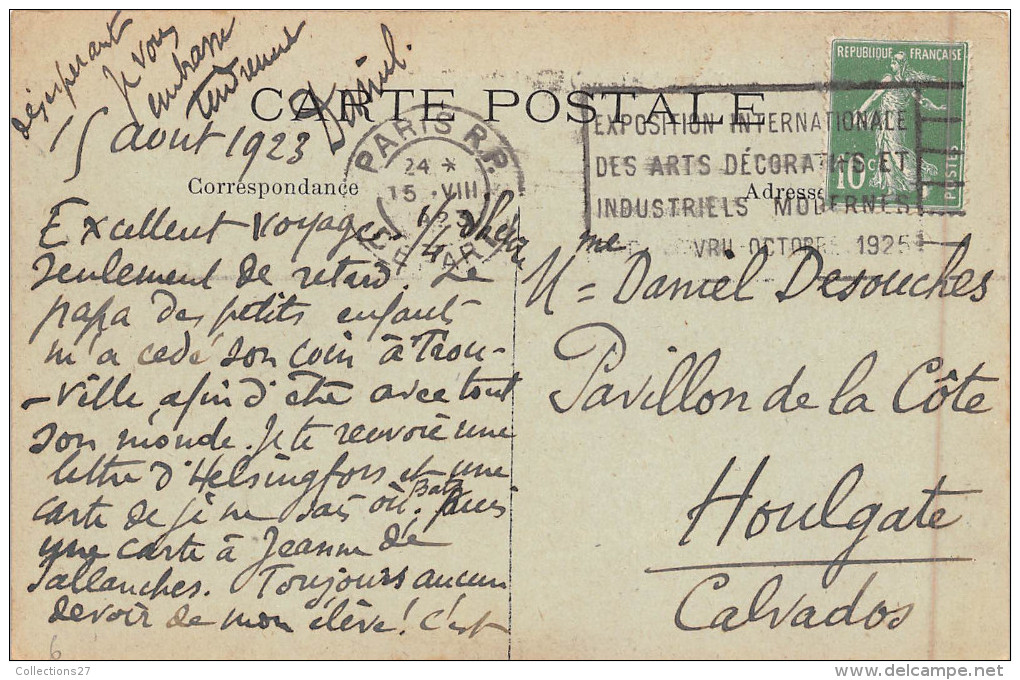 CARTE POSTALE
Correspondance
Adresse
15 Aout 1923
Excellent voyage. 1/4 d'heure
seulement de retard. Le
papa des petits enfants
m'a cedé son coin à Trou-
-ville, afin d'être avec tout
son monde. Je te renvoie une
lettre d'Helsingfors et une
carte de je ne sais où. Puis
une carte à Jeanne de
Sallanches. Toujours aucun
devoir de mon élève! C'est
désespérant
Je vous
embrasse
tendrement
Daniel.
PARIS R.P.
24 *
15 · VIII
DÉPART
REPUBLIQUE FRANÇAISE
10c
POSTES
EXPOSITION INTERNATIONALE
DES ARTS DÉCORATIFS ET
INDUSTRIELS MODERNES
AVRIL OCTOBRE 1925
Mme Daniel Desouches
Pavillon de la Côte
Houlgate
Calvados
6
Collections27
www.delcampe.net